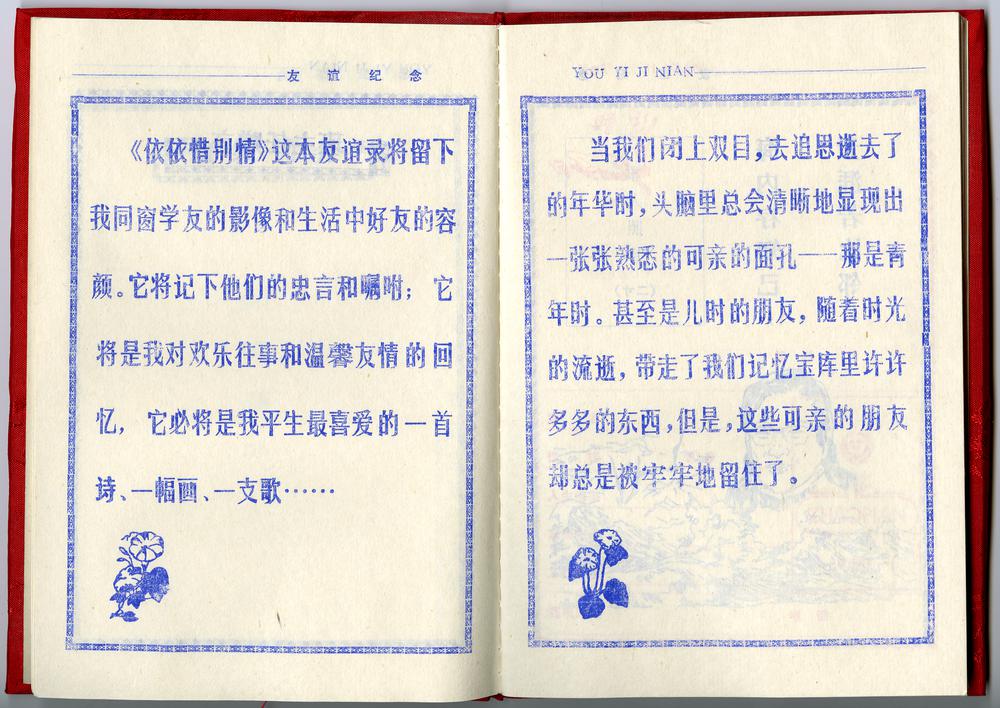 友谊纪念
《依依惜别情》这本友谊录将留下
我同窗学友的影像和生活中好友的容
颜。它将记下他们的忠言和嘱咐；它
将是我对欢乐往事和温馨友情的回
忆，它必将是我平生最喜爱的一首
诗、一幅画、一支歌……
YOU YI JI NIAN
当我们闭上双目，去追思逝去了
的年华时，头脑里总会清晰地显现出
一张张熟悉的可亲的面孔——那是青
年时。甚至是儿时的朋友，随着时光
的流逝，带走了我们记忆宝库里许许
多多的东西，但是，这些可亲的朋友
却总是被牢牢地留住了。